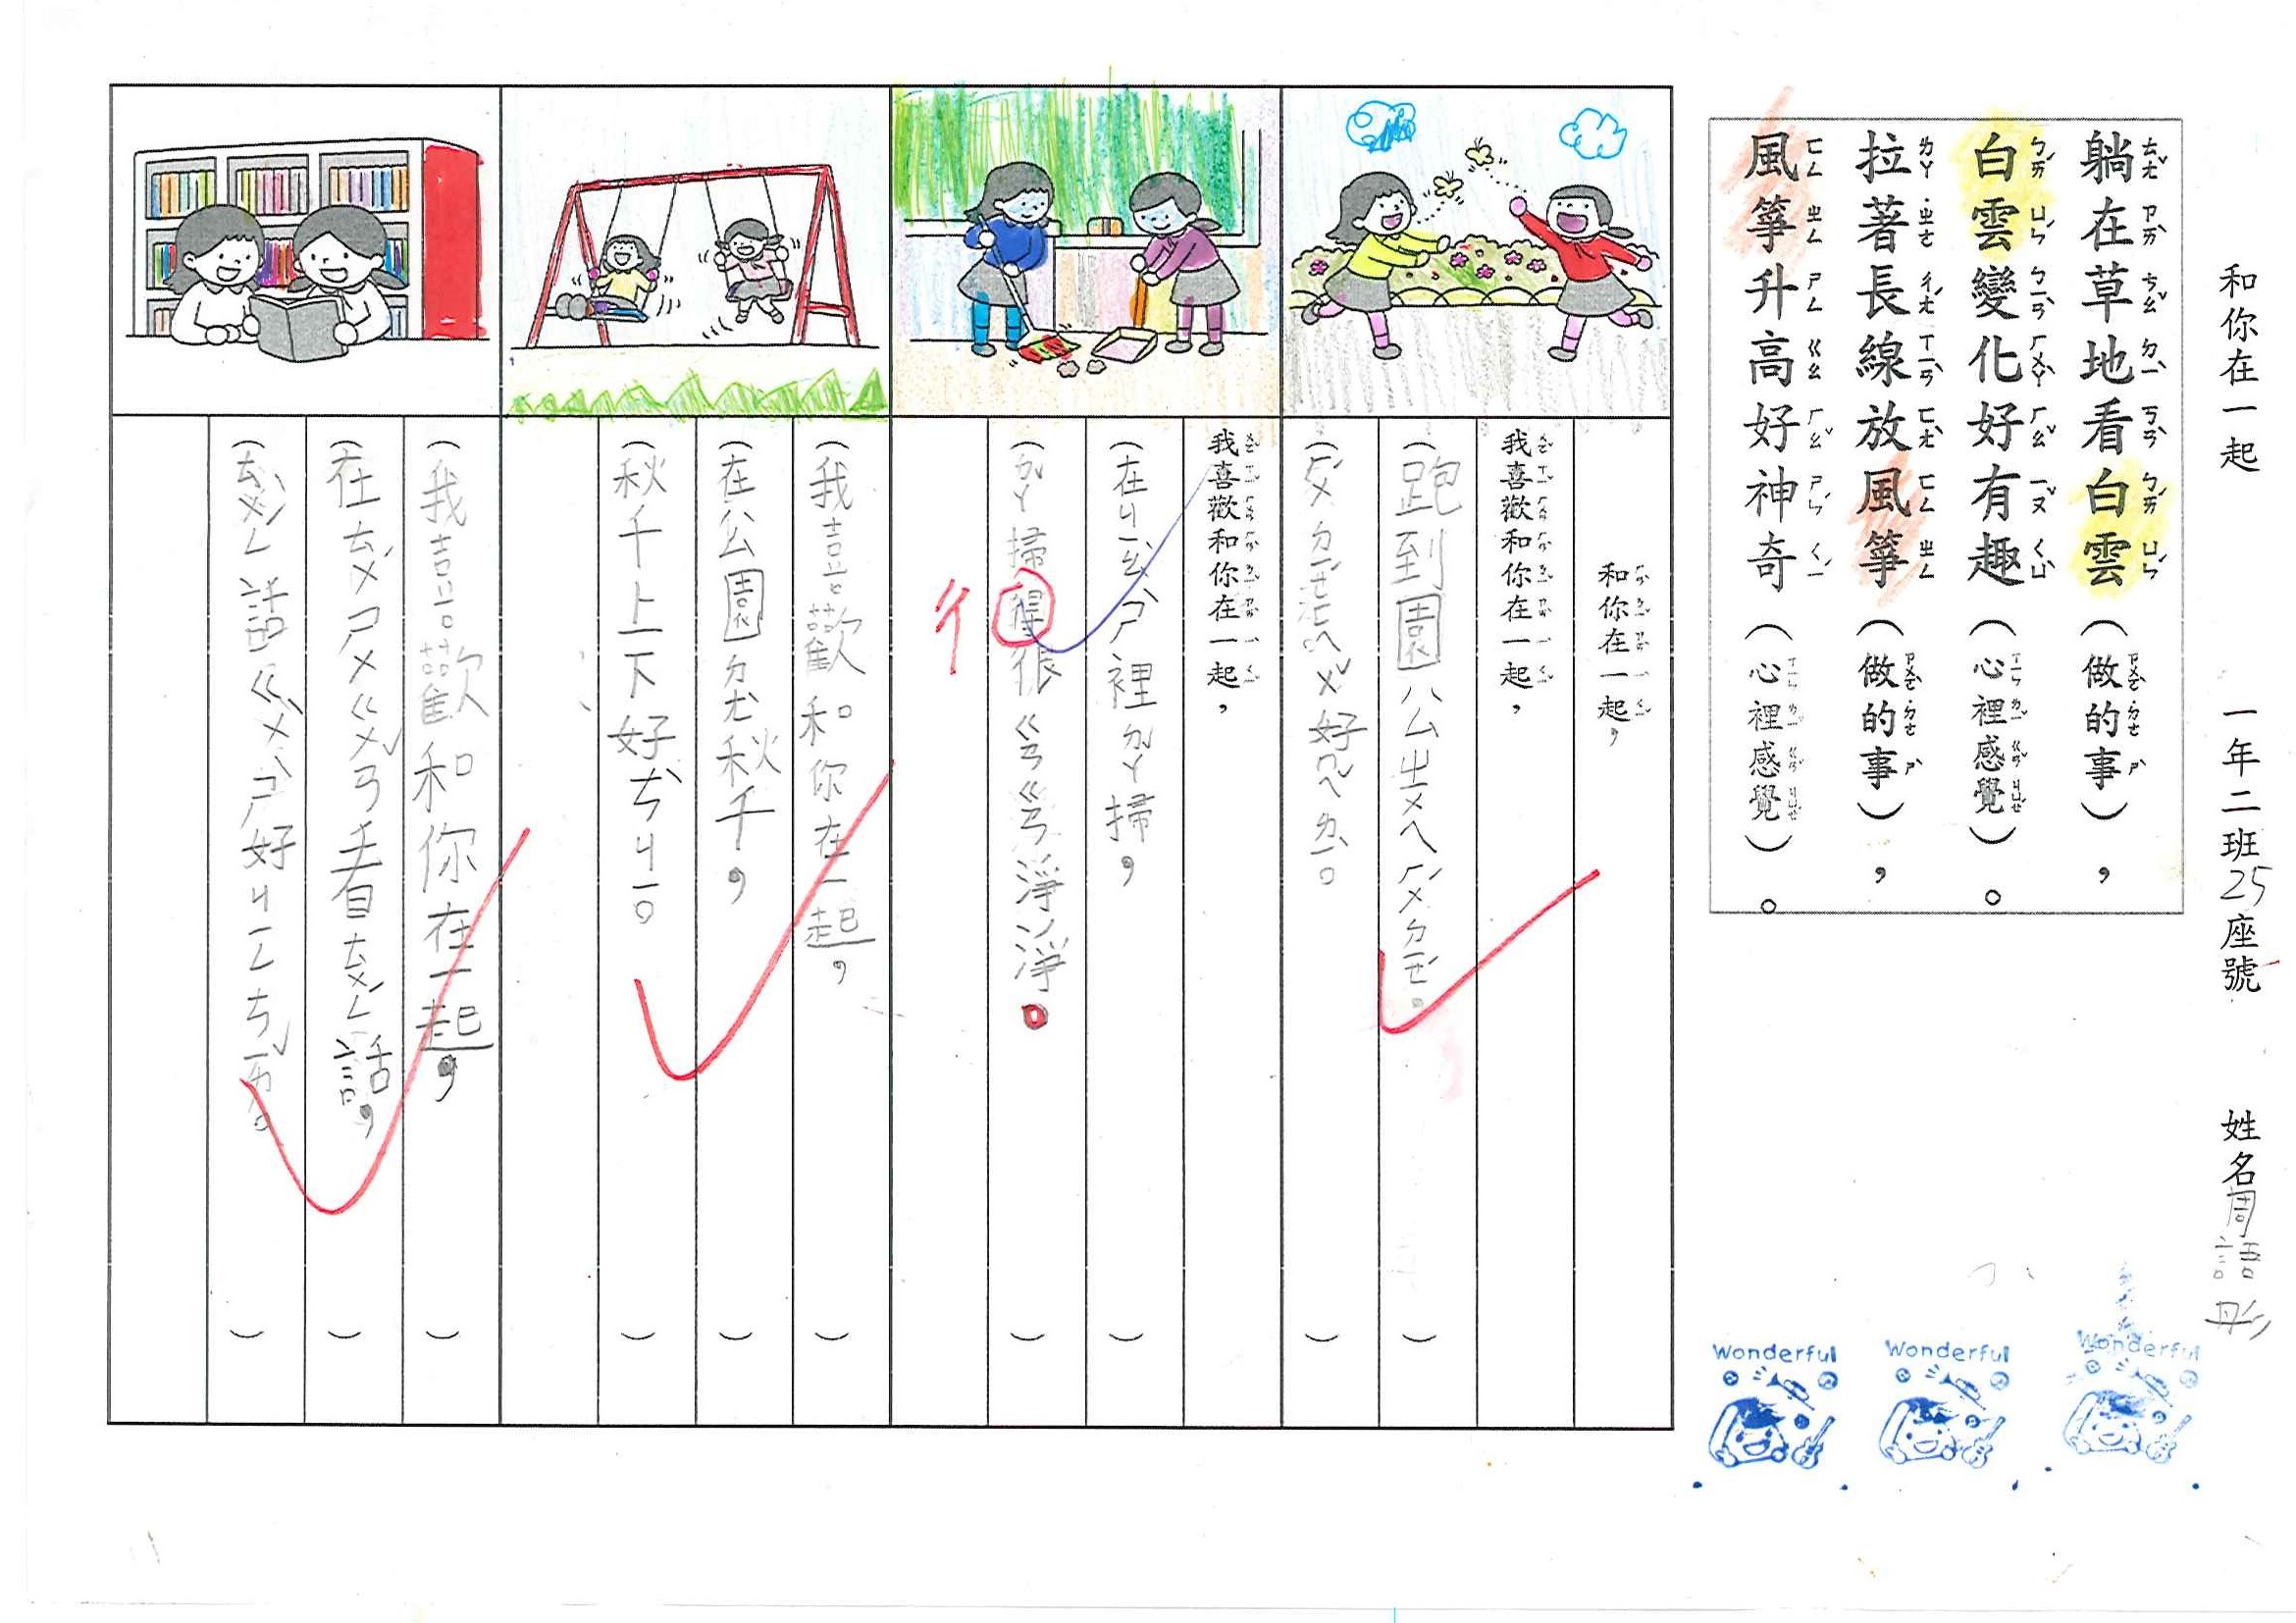 和你在一起 一年二班25座號 姓名周語彤
躺在草地看白雲(做的事),
白雲變化好有趣(心裡感覺)。
拉著長線放風箏(做的事),
風箏升高好神奇(心裡感覺)。
和你在一起,
我喜歡和你在一起,
(跑到園ㄍㄨㄥ)
(好)
我喜歡和你在一起,
(在ㄐㄧㄠˋㄕˋ裡ㄉㄚˇ掃,)
(ㄉㄚˇ掃得很ㄍㄢㄍㄢ淨淨。)
彳
(我喜歡和你在一起,)
(在公園ㄉㄤ秋千,)
(秋千上上下下好ㄘˋㄐㄧ。)
(我喜歡和你在一起,)
(在ㄊㄨˊㄕㄨㄍㄨㄢˇ看ㄊㄨㄥˊ話,)
(ㄊㄨㄥˊ話ㄍㄨˋㄕˋ好ㄐㄧㄥㄘㄞˇ。)
Wonderful
Wonderful
Wonderful